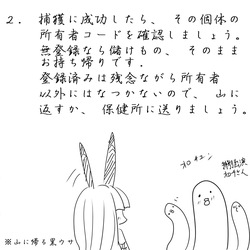 2. 捕獲に成功したら、その個体の
所有者コードを確認しましょう。
無登録なら儲けもの、そのまま
お持ち帰りです．
登録済みは残念ながら所有者
以外にはなつかないので、山に
返すか、保健所に送りましょう。
※山に帰る黒ウサ